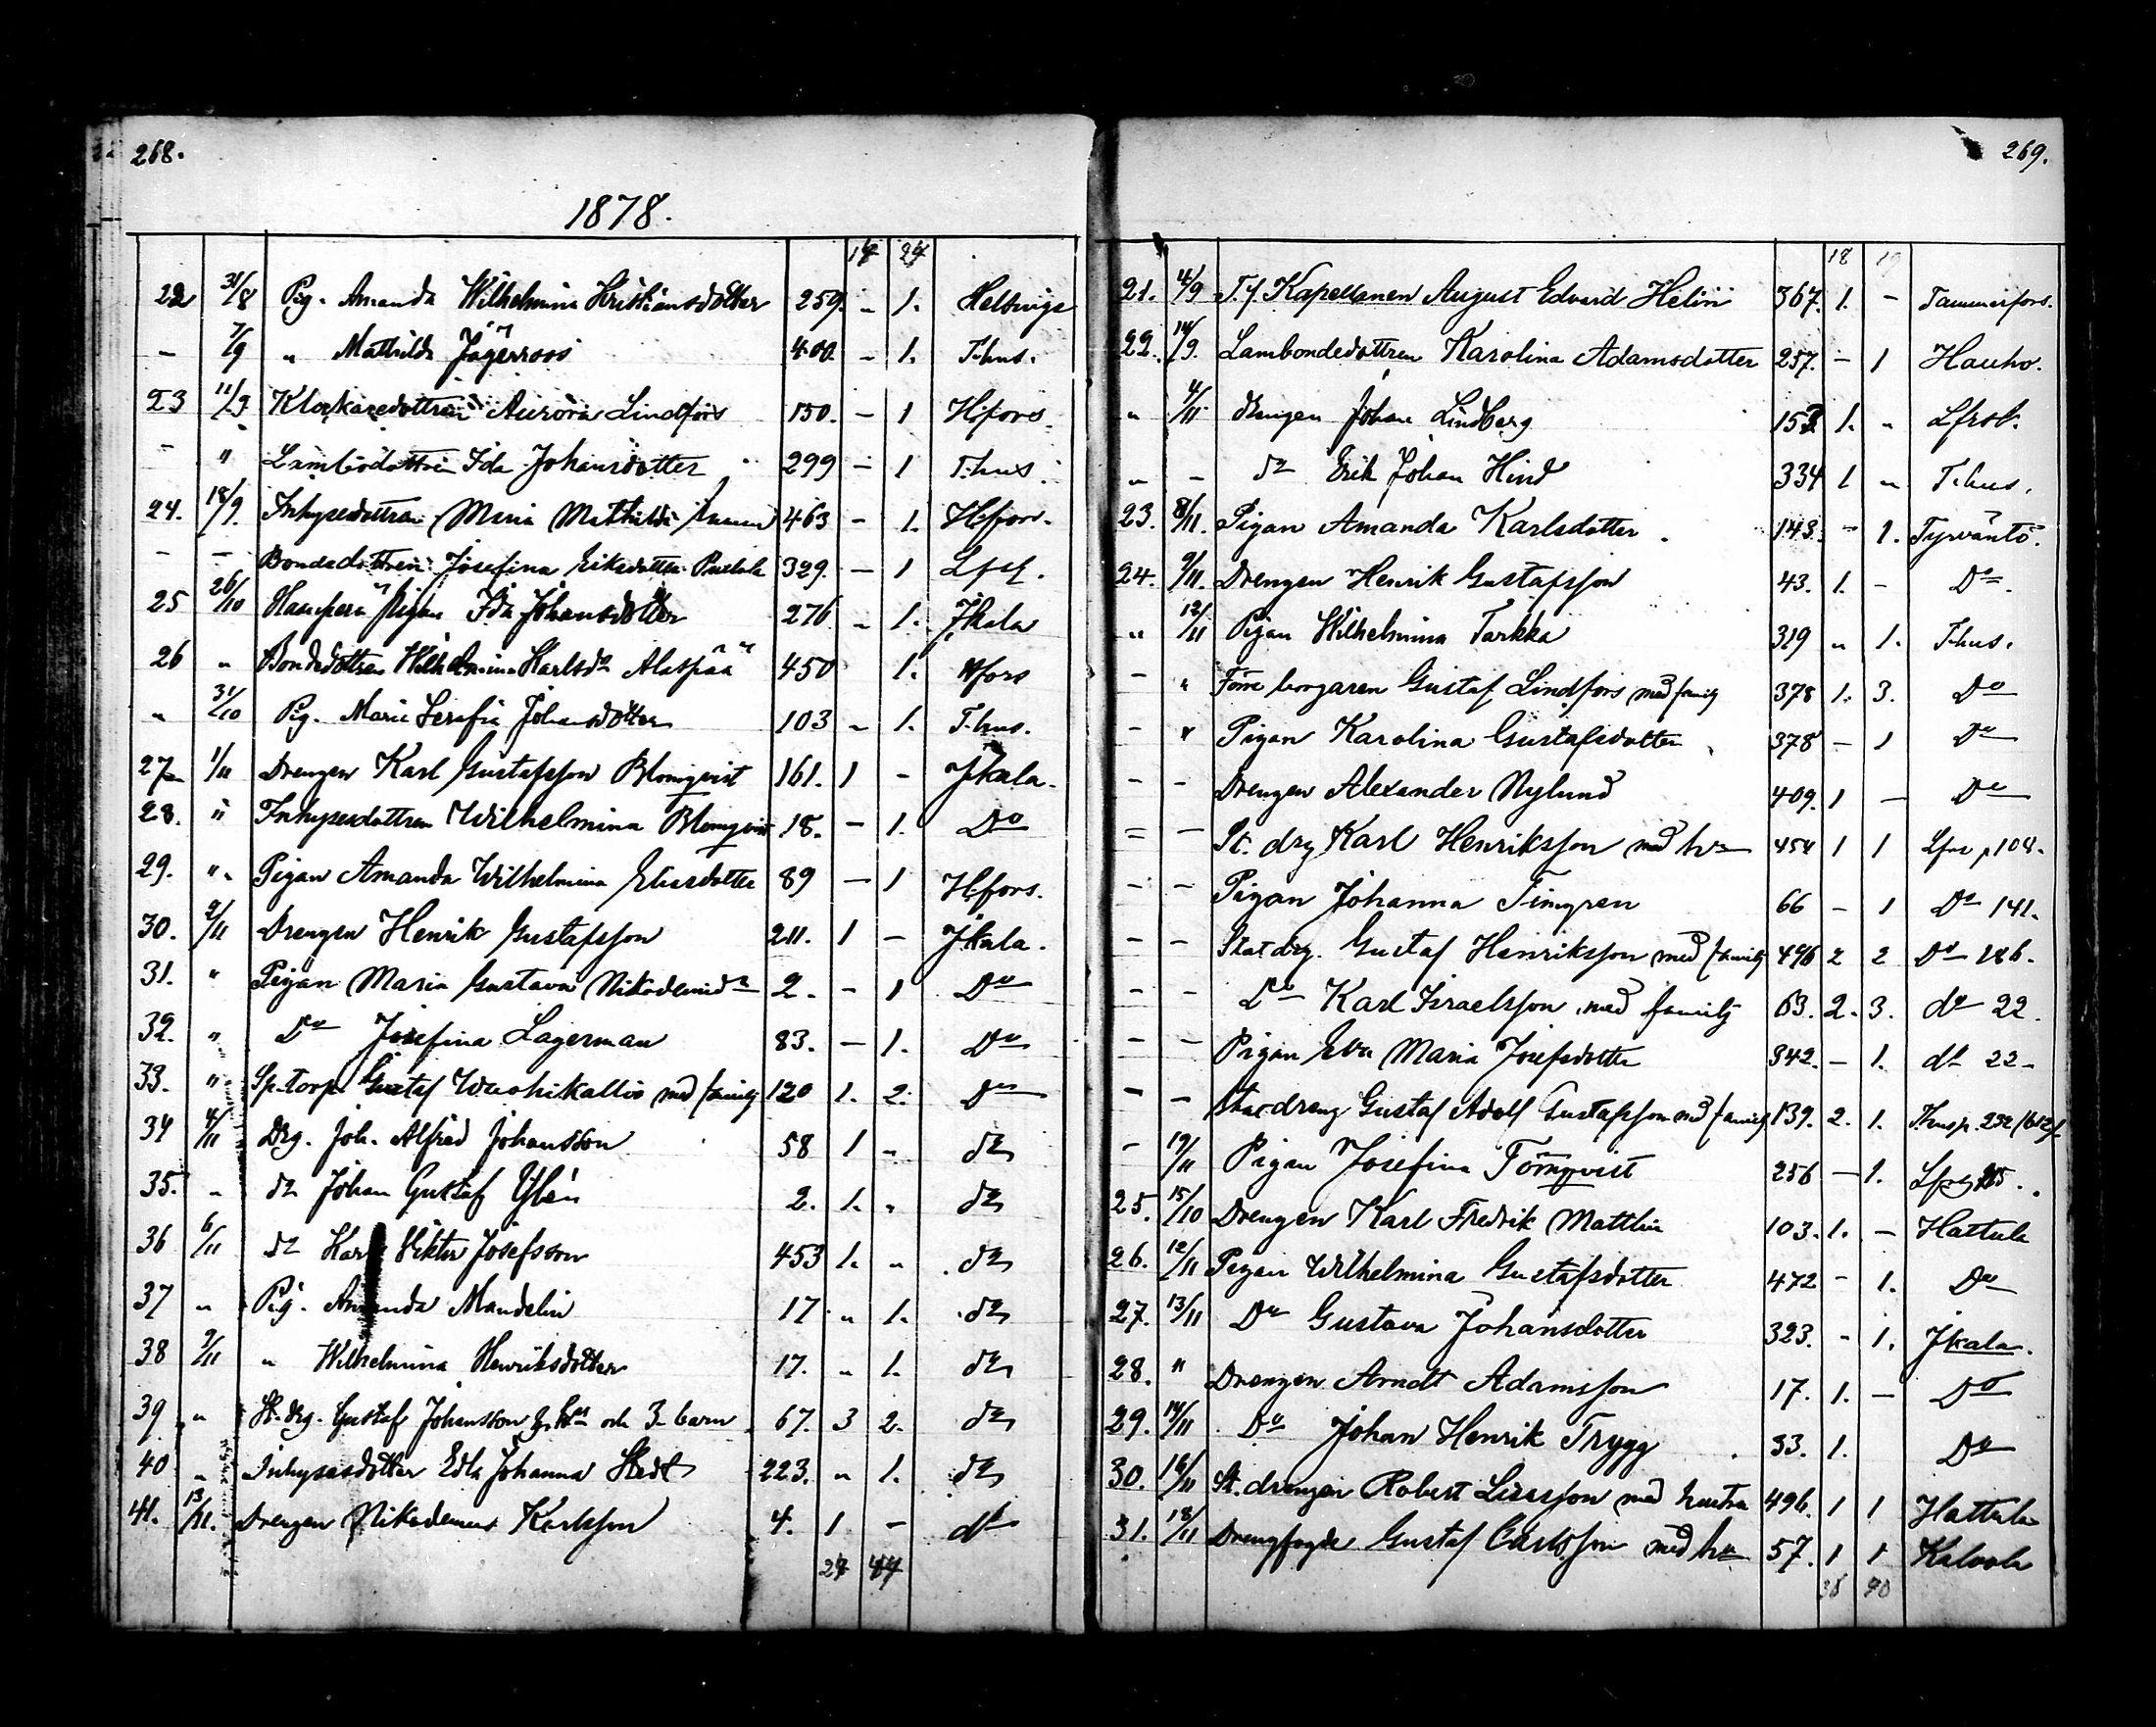 268.
1878.
14 24
22 31/8 Pig. Amanda Wilhelmina Kristiansdotter 259. - 1. Helsinge
- 7/9 " Mathilda Jägerroos 400. - 1. T.hus.
23 11/9. Klockaredottren Aurora Lindfors 150. - 1 H.fors.
- " Lambodottren Ida Johansdotter 299 - 1 T.hus.
24. 18/9. Inhysedottren Maria Mathilda 463 - 1. H.fors.
- - Bondedottren Josefina Eriksdotter 329. - 1
25 26/10 Pigan Ida Johansdotter 276 - 1. Jkala
26 " Bondedottren Wilhelmina Karlsdr Alaspää 450 1. Hfors
" 31/10 Pig. Maria Serafia Johansdotter 103 - 1. T.hus.
27 1/11 Drengen Karl Gustafsson Blomqvist 161. 1 - Jkala.
28. " Inhysesdottren Wilhelmina Blomqvist 18. - 1. Do
29. " Pigan Amanda Wilhelmina Eliasdotter 89 - 1 H.fors.
30. 2/11 Drengen Henrik Gustafsson 211. 1 - Jkala.
31. " Pigan Maria Gustava Nikodemidr 2. - 1 Do
32. " Do Josefina Lagerman 83. - 1. Do
33. " Sp.torp. Gustaf Wuohikallio med familj 120 1. 2. Do
34 4/11 Drg. Joh. Alfred Johansson 58 1 " do
35. " do Johan Gustaf Ylén 2. 1. " do
36 6/11 do Karl Viktor Josefsson 453 1. " do
37 " Pig. Amanda Mandelin 17 " 1. do
38 9/11 " Wilhelmina Henriksdotter 17. " 1. do
39 " St.drg. Gustaf Johansson och 3 barn 67. 3 2. do
40 " Inhysesdotter Edla Johanna Stedt 223. " 1. do
41. 13/11. Drengen Nikodemus Karlsson 4. 1 - do
24 44
269.
18 19
21. 4/9 T.f. Kapellanen August Edvard Helin 367. 1. - Tammerfors.
22. 14/9. Lambondedottren Karolina Adamsdotter 257. - 1 Hauho.
" 4/11 drengen Johan Lindberg 153 1. "
" - do Erik Johan Hind 334 1 " T.hus.
23. 8/11. Pigan Amanda Karlsdotter 143. - 1. Tyrväntö.
24. 9/11. Drengen Henrik Gustafsson 43. 1. - Do.
" 12/11 Pigan Wilhelmina Tarkka 319 " 1. T.hus.
- " Förre borgaren Gustaf Lindfors med familj 378 1. 3. Do
- " Pigan Karolina Gustafsdotter 378 - 1 Do
- - Drengen Alexander Nylund 409. 1 - Do
- - St. drg Karl Henriksson med hu 454 1 1 108.
- - Pigan Johanna Timgren 66 - 1 Do 141.
- - Statdrg. Gustaf Henriksson med familj 496 2 2 Do 186.
- - Do Karl Israelsson med familj 63. 2. 3. do 22.
- - Pigan Eva Maria Josefsdotter 342. - 1. do 22.
- - Statdreng Gustaf Adolf Gustafsson med familj 139. 2. 1.
- 19/11 Pigan Josefina Törnqvist 256 - 1.
25. 15/10 Drengen Karl Fredrik Mattlin 103. 1. - Hattula
26. 12/11 Pigan Wilhelmina Gustafsdotter 472 - 1. Do
27. 13/11 Do Gustava Johansdotter 323. - 1. Jkala.
28. " Drengen Arndt Adamsson 17. 1. - Do
29. 14/11 Do Johan Henrik Trygg 33. 1. Do
30. 16/11 St. drengen Robert med hustru 496. 1 1 Hattula
31. 18/11 Drengfogde Gustaf Carlsson med hu 57. 1 1 Kalvola